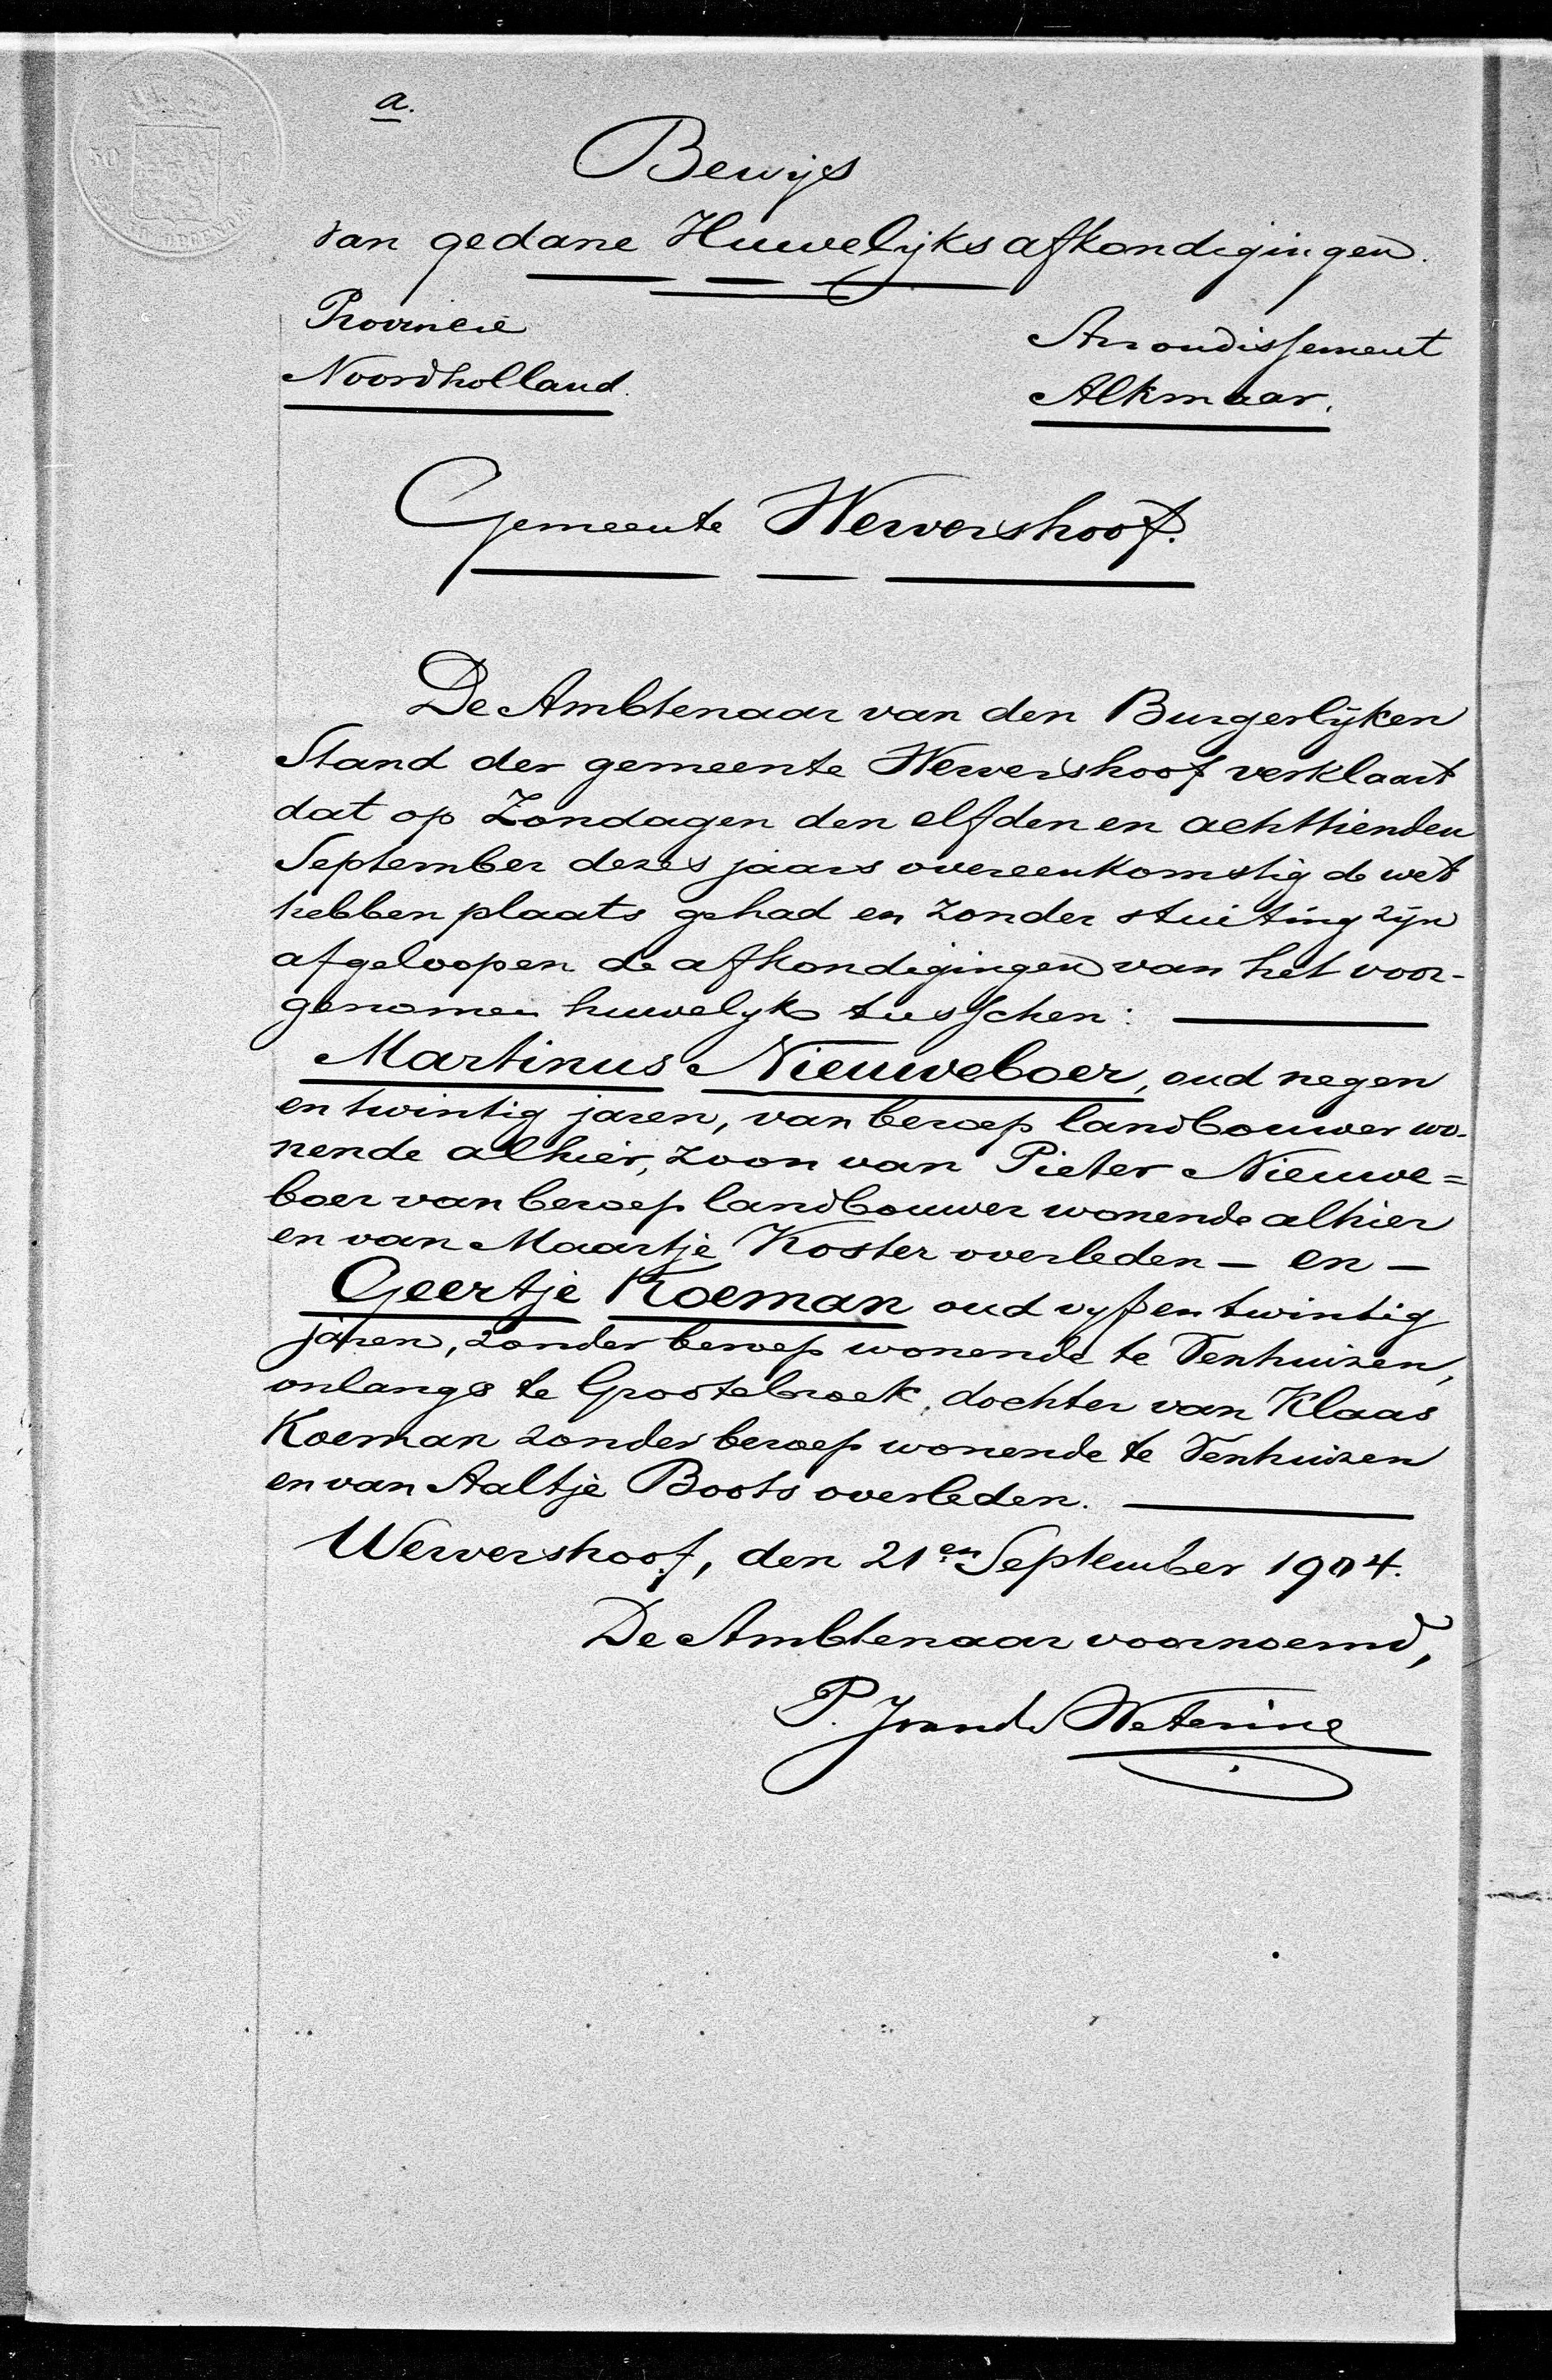 a.
Bewijs
van gedane Huwelijksafkondigingen.
Provincie
Noordholland.
Arrondissement
Alkmaar.
Gemeente Wervershoof.
De Ambtenaar van den Burgerlijken
Stand der gemeente Wervershoof verklaart
dat op Zondagen den elfden en achttienden
September dezes jaars overeenkomstig de wet
hebben plaats gehad en zonder stuiting zijn
afgeloopen de afkondigingen van het voor-
genomen huwelijk tusschen:
Martinus Nieuweboer, oud negen
en twintig jaren, van beroep landbouwer wo-
nende alhier, zoon van Pieter Nieuwe=
boer van beroep landbouwer wonende alhier
en van Maartje Koster overleden – en –
Geertje Koeman oud vijf en twintig
jaren, zonder beroep wonende te Venhuizen,
onlangs te Grootebroek, dochter van Klaas
Koeman zonder beroep wonende te Venhuizen
en van Aaltje Boots overleden.
Wervershoof, den 21en September 1904.
De Ambtenaar voornoemd,
P. Wetering
50